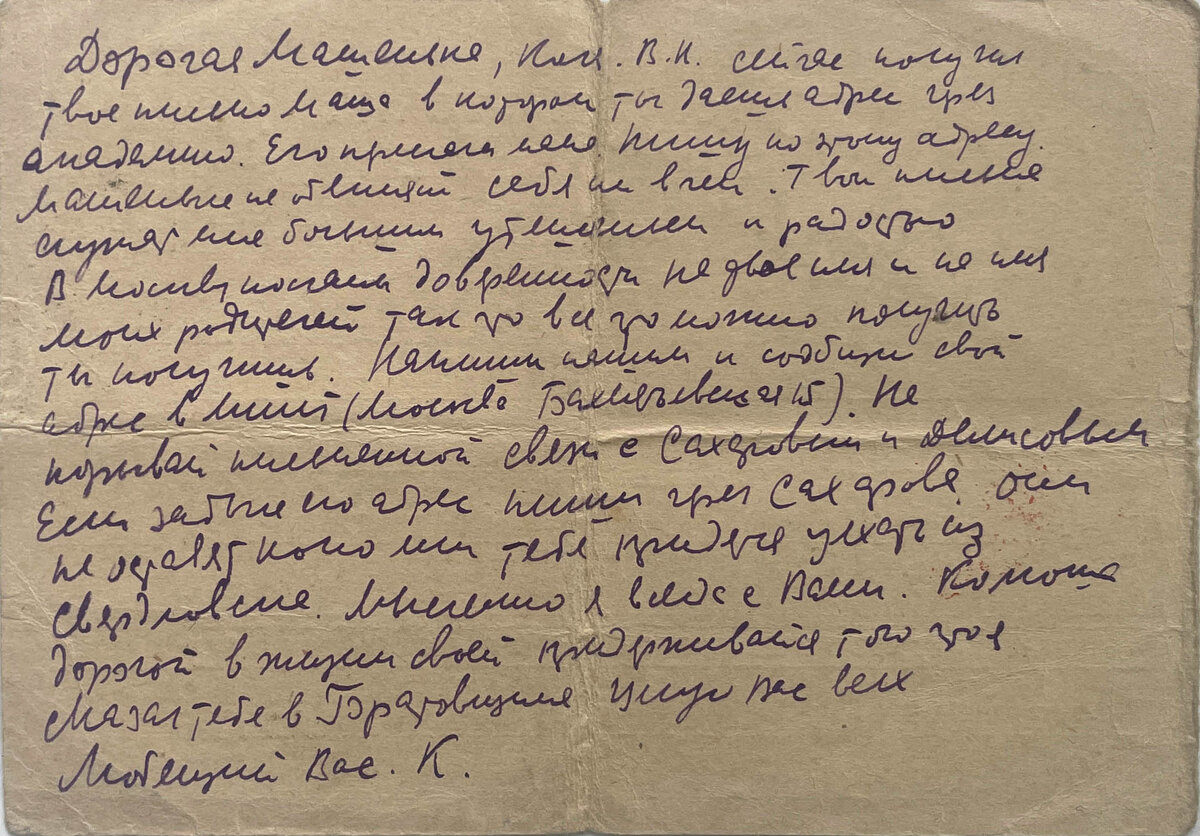 Дорогая Машенька, Кот. В.К. сейчас получил
твое письмо Маща в котором ты даешь адрес чрез
академию. Его прислала пишу по этому адресу.
Машенька не обвиняй себя ни в чем. Твои письма
служат мне большим утешением и радостью
В Москву послал доверенности на двое имя и на имя
моих родителей так что все что можно получить
ты получишь. Напиши нашим и сообщи свой
адрес в (Москва 15). Не
порывай письменной связи с Сахаровым и Денисовым
Если забыла по адрес пиши чрез Сахарова. они
не оставят коли тебе придется уехать из
Свердловска. Мысленно я всегда с Вами. Котоша
дорогой в жизни своей придерживайся того что я
сказал тебе в Братовщине Целую вас всех
Любящий Вас. К.